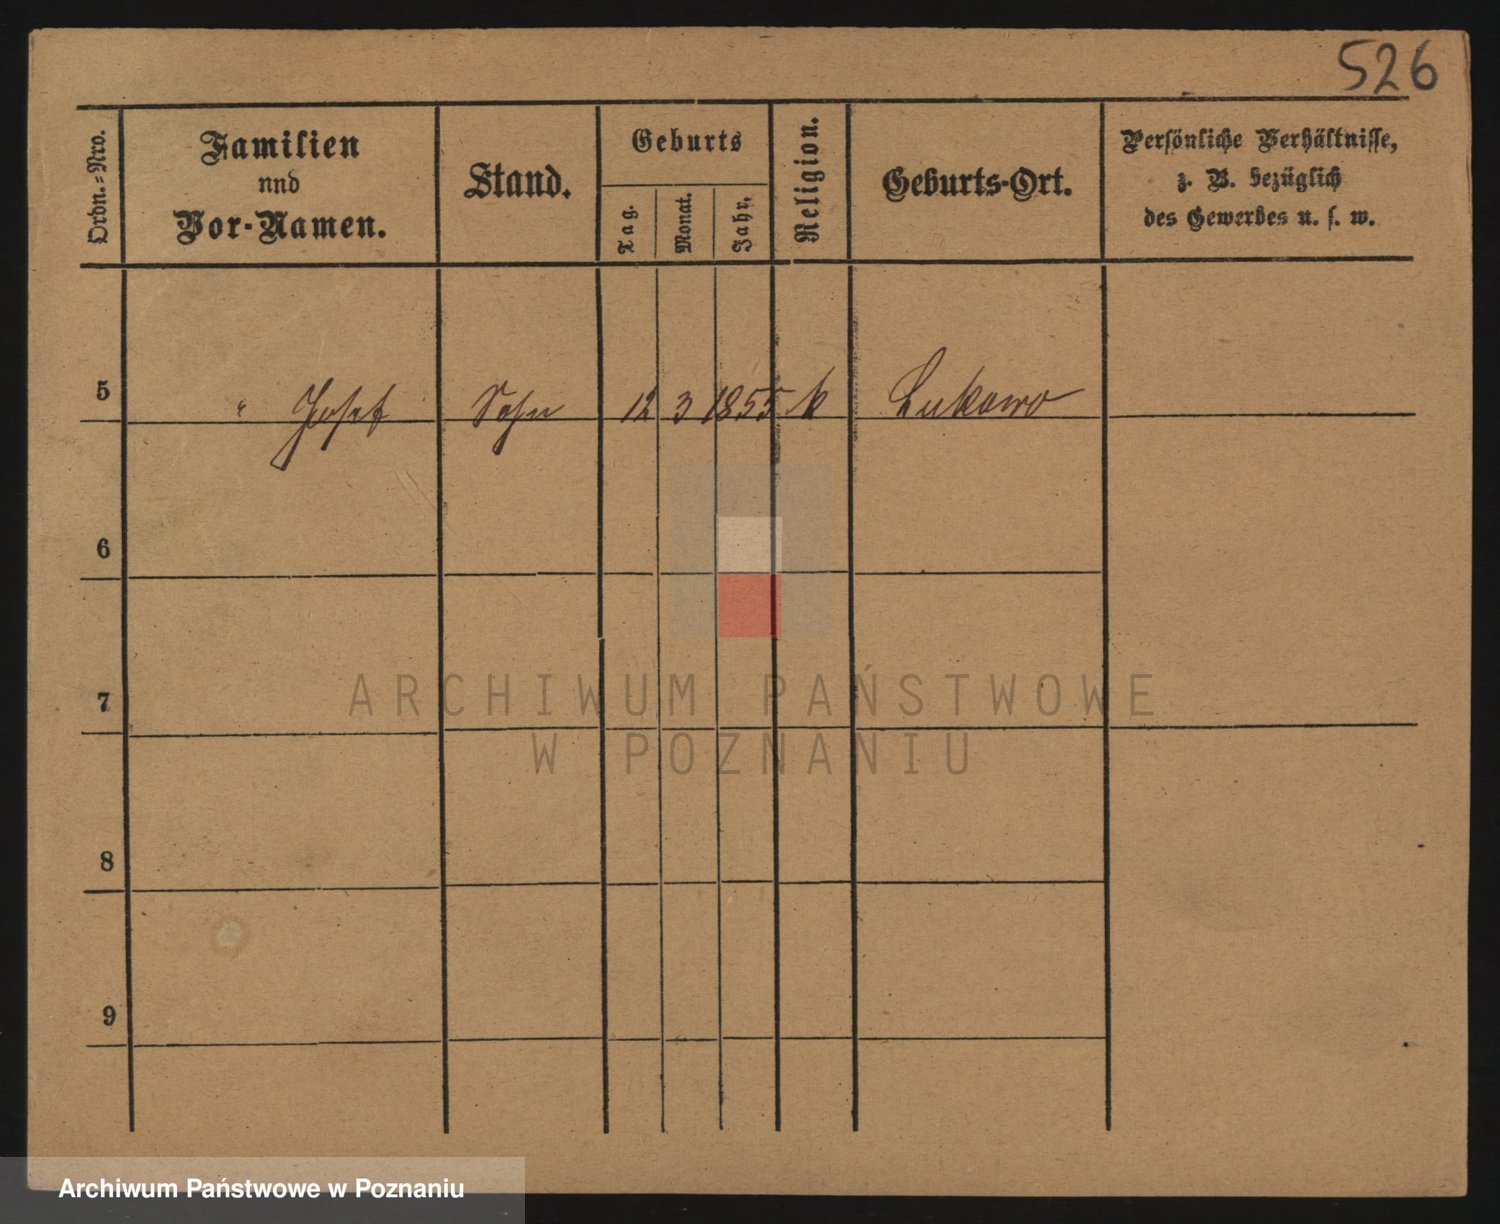 526
Ordn.-Nro.
Familien
nnd
Vor-Namen.
Stand.
Geburts
Tag.
Monat.
Jahr.
Religion.
Geburts-Ort.
Persönliche Verhältnisse,
z. B. bezüglich
des Gewerbes u. s. w.
5 " Josef Sohn 12 3 1855 k Lukowo
6
7
8
9
ARCHIWUM PAŃSTWOWE
W POZNANIU
Archiwum Państwowe w Poznaniu